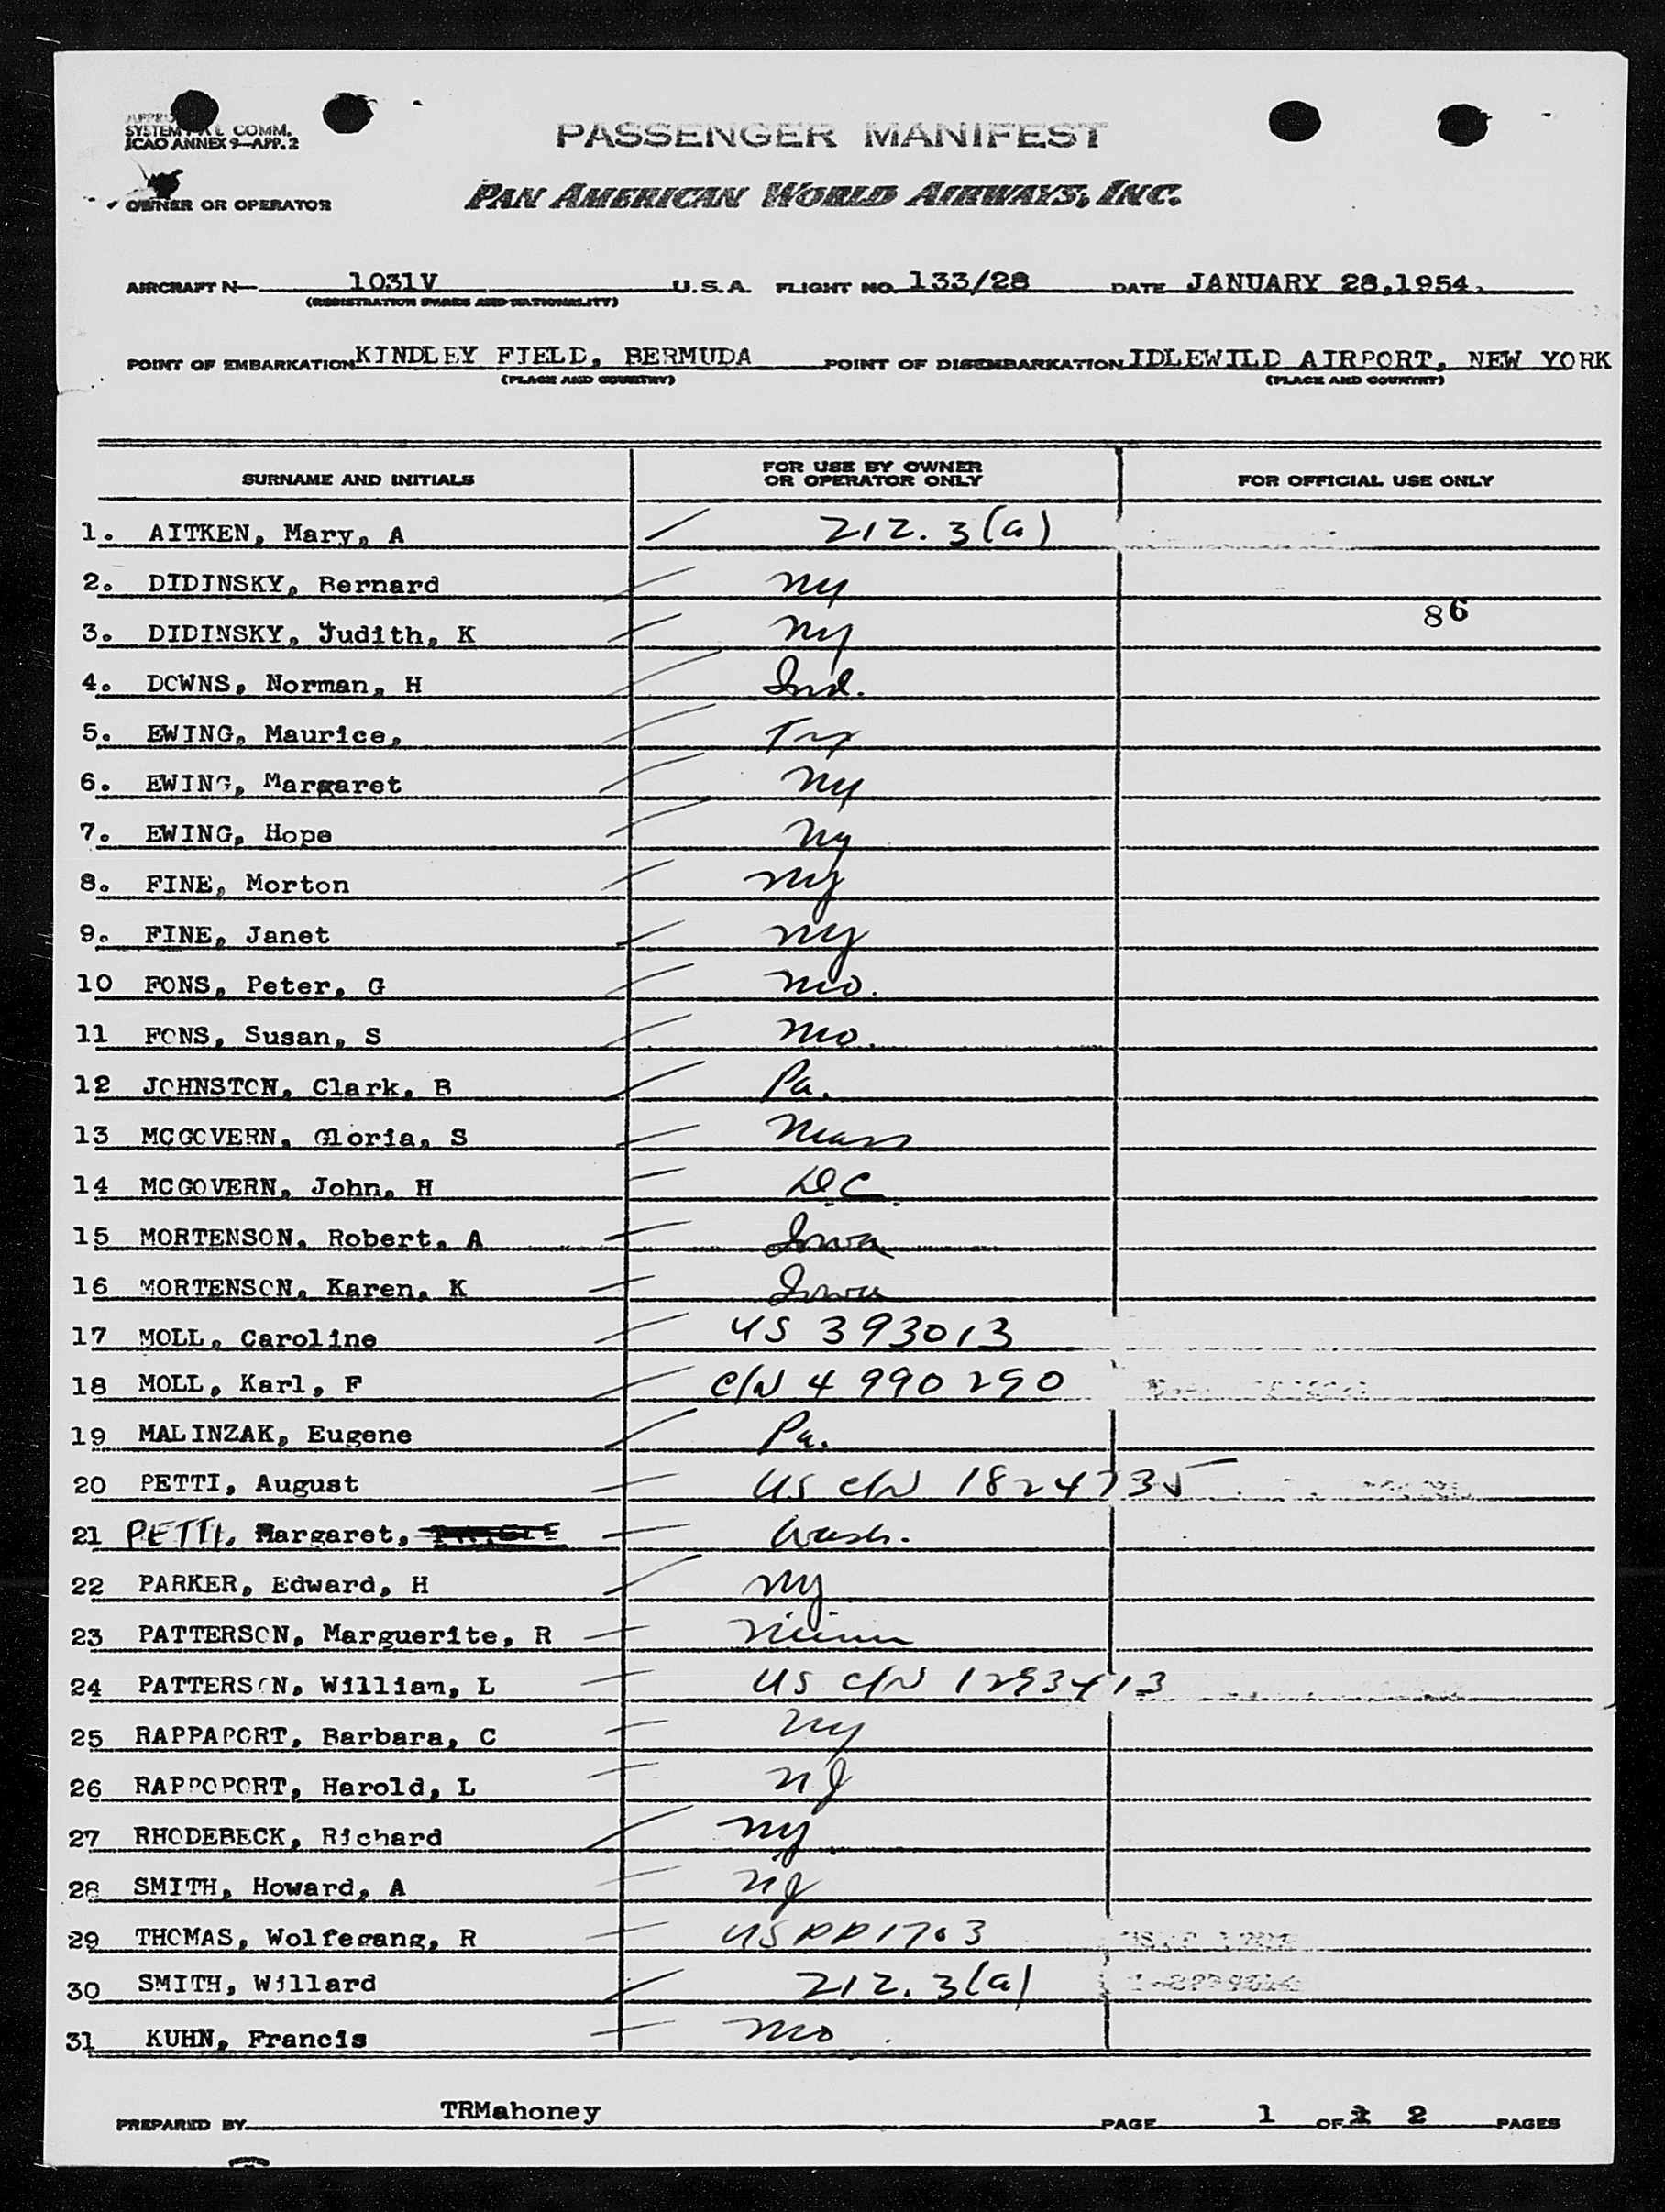 SYSTEM COMM.
ICAO ANNEX 9—APP. 2
PASSENGER MANIFEST
OWNER OR OPERATOR PAN AMERICAN WORLD AIRWAYS, INC.
AIRCRAFT N— 1031V U.S.A. FLIGHT NO. 133/28 DATE JANUARY 28,1954.
(REGISTRATION MARKS AND NATIONALITY)
POINT OF EMBARKATION KINDLEY FIELD, BERMUDA POINT OF DISEMBARKATION IDLEWILD AIRPORT, NEW YORK
(PLACE AND COUNTRY) (PLACE AND COUNTRY)
SURNAME AND INITIALS FOR USE BY OWNER OR OPERATOR ONLY FOR OFFICIAL USE ONLY
1. AITKEN, Mary, A 212.3(a)
2. DIDINSKY, Bernard Ny
86
3. DIDINSKY, Judith, K Ny
4. DOWNS, Norman, H Ind.
5. EWING, Maurice,
6. EWING, Margaret Ny
7. EWING, Hope Ny
8. FINE, Morton Ny
9. FINE, Janet Ny
10 FONS, Peter, G Mo.
11 FONS, Susan, S Mo.
12 JOHNSTON, Clark, B Pa.
13 MCGOVERN, Gloria, S Mass
14 MCGOVERN, John, H D.C.
15 MORTENSON, Robert, A Iowa
16 MORTENSON, Karen, K Iowa
17 MOLL, Caroline US 393013
18 MOLL, Karl, F C/N 4 990 290
19 MALINZAK, Eugene Pa.
20 PETTI, August US C/N 1824735
21 PETTI, Margaret, Wash.
22 PARKER, Edward, H Ny
23 PATTERSON, Marguerite, R Minn
24 PATTERSON, William, L US C/N 1293413
25 RAPPAPORT, Barbara, C Ny
26 RAPPOPORT, Harold, L NJ
27 RHODEBECK, Richard Ny
28 SMITH, Howard, A NJ
29 THOMAS, Wolfegang, R US PP 1703
30 SMITH, Willard 212.3(a)
31 KUHN, Francis Mo
PREPARED BY TRMahoney PAGE 1 OF 2 PAGES